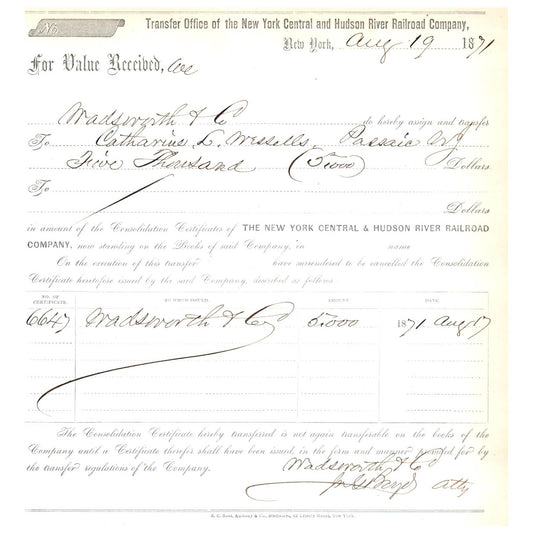 No
Transfer Office of the New York Central and Hudson River Railroad Company,
New York, Aug 19 1871
For Value Received, We
Wadsworth & Co do hereby assign and transfer
To Catharius L. Wessells Passaic NJ
Five Thousand (5.000) Dollars
To
Dollars
in amount of the Consolidation Certificates of THE NEW YORK CENTRAL & HUDSON RIVER RAILROAD
COMPANY, now standing on the Books of said Company, in name
On the execution of this transfer have surrendered to be cancelled the Consolidation
Certificate heretofore issued by the said Company, described as follows
NO. OF CERTIFICATE. TO WHOM ISSUED. AMOUNT DATE
6647 Wadsworth & Co 5.000 1871 Aug 17
The Consolidation Certificate hereby transferred is not again transferable on the books of the
Company until a Certificate therefor shall have been issued, in the form and manner provided for by
the transfer regulations of the Company.
Wadsworth & Co
Atty
New York.